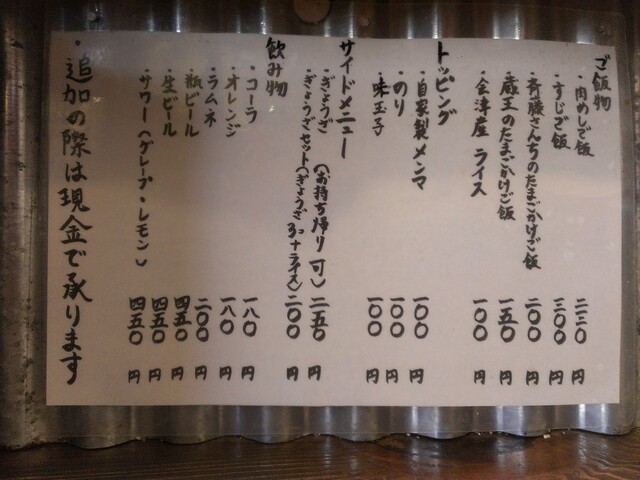 ご飯物
・肉めしご飯 二三〇円
・すじご飯 三〇〇円
・斉藤さんちのたまごかけご飯 二〇〇円
・蔵王のたまごかけご飯 一五〇円
・会津産 ライス 一〇〇円
トッピング
・自家製メンマ 一〇〇円
・のり 一〇〇円
・味玉子 一〇〇円
サイドメニュー
・ぎょうざ (お持ち帰り可) 二五〇円
・ぎょうざセット(ぎょうざ3コ+ライス) 二〇〇円
飲み物
・コーラ 一八〇円
・オレンジ 一八〇円
・ラムネ 二〇〇円
・瓶ビール 四五〇円
・生ビール 四五〇円
・サワー(グレープ・レモン) 四五〇円
・追加の際は現金で承ります